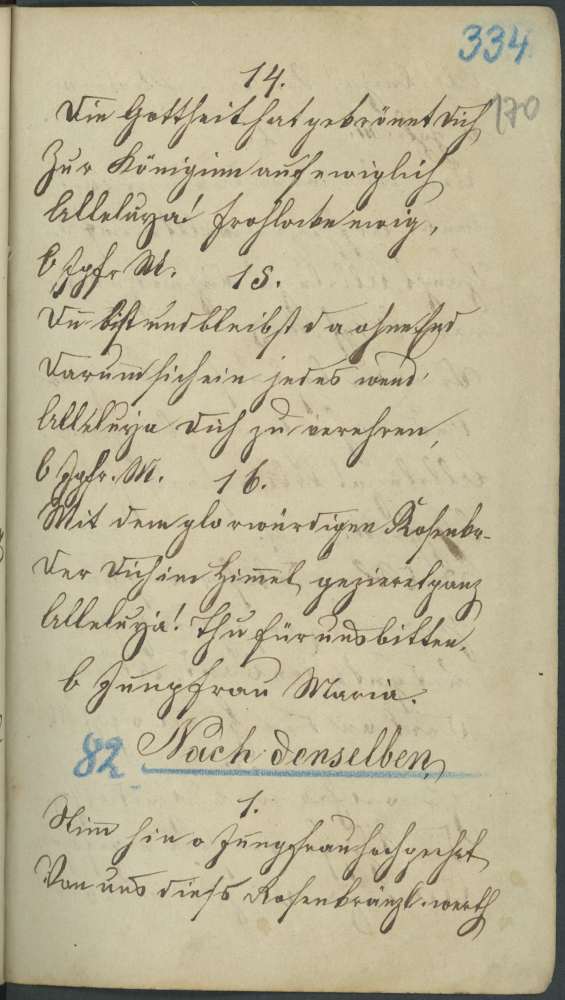 334
170
14.
Die Gottheit hat gekrönnet dich
Zur Königinn auf ewiglich
Alleluya! frohlocke ewig,
O Jgfr M. 15.
Du bist und bleibst da ohne End
Darum sich ein jedes wend'
Alleluya dich zu verehren,
O Jgfr. M. 16.
Mit dem glorwürdigen Rosenkr-
Der dich im Himel gezieret ganz
Alleluya! thu für uns bitten,
O Jungfrau Maria.
82 Nach denselben,
1.
Nim hin o Jungfrau hochgeehrt
Von uns dieß Rosenkränzl. werth